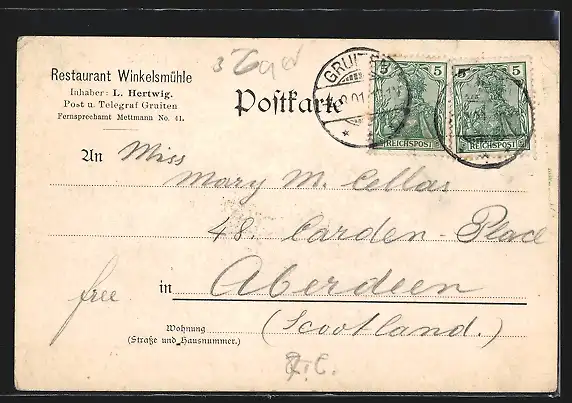 Restaurant Winkelsmühle
Inhaber: L. Hertwig.
Post u. Telegraf Gruiten
Fernsprechamt Mettmann No. 41.
Postkarte
GRUITEN
5 5
REICHSPOST
5
REICHSPOST
An Miss
Mary M. Collas
48. Carden-Place
in Aberdeen
free
(Scootland.)
Wohnung
(Straße und Hausnummer.)